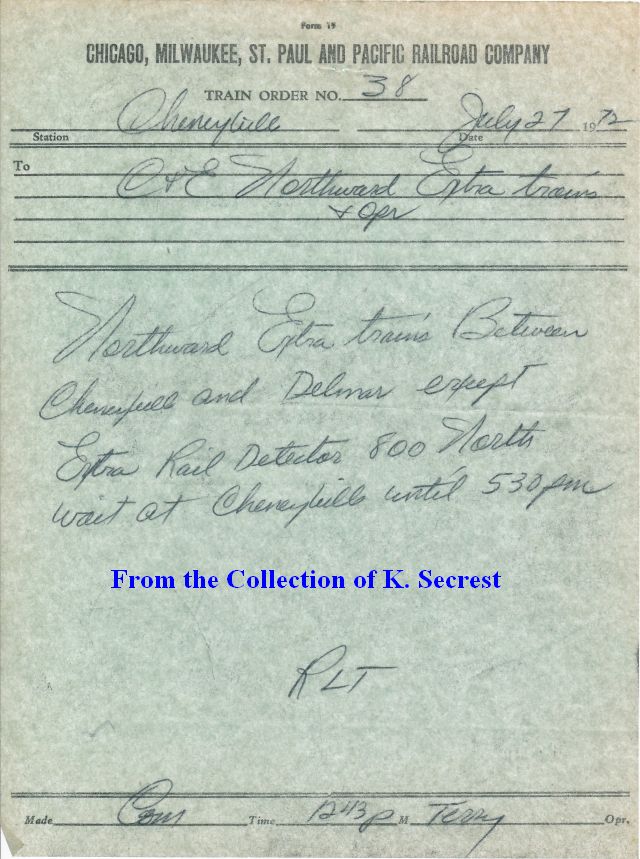 Form 19
CHICAGO, MILWAUKEE, ST. PAUL AND PACIFIC RAILROAD COMPANY
TRAIN ORDER NO. 38
Cheneyville July 27 1972
Station Date
To C & E Northward Extra trains
& Opr
Northward Extra trains Between
Cheneyville and Delmar except
Extra Rail Detector 800 North
wait at Cheneyville until 530 pm
From the Collection of K. Secrest
RLT
Made Com Time 1243 P M Terry Opr.